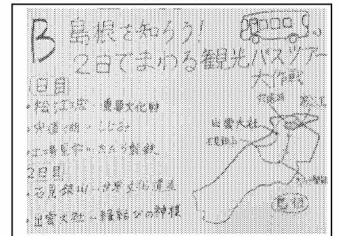 B 島根を知ろう!
2日でまわる観光バスツアー
大作戦
1日目
・松江城-重要文化財
・宍道湖-しじみ
・工場見学-たたら製鉄
2日目
・石見銀山-世界文化遺産
・出雲大社-縁結びの神様
出雲大社
島根